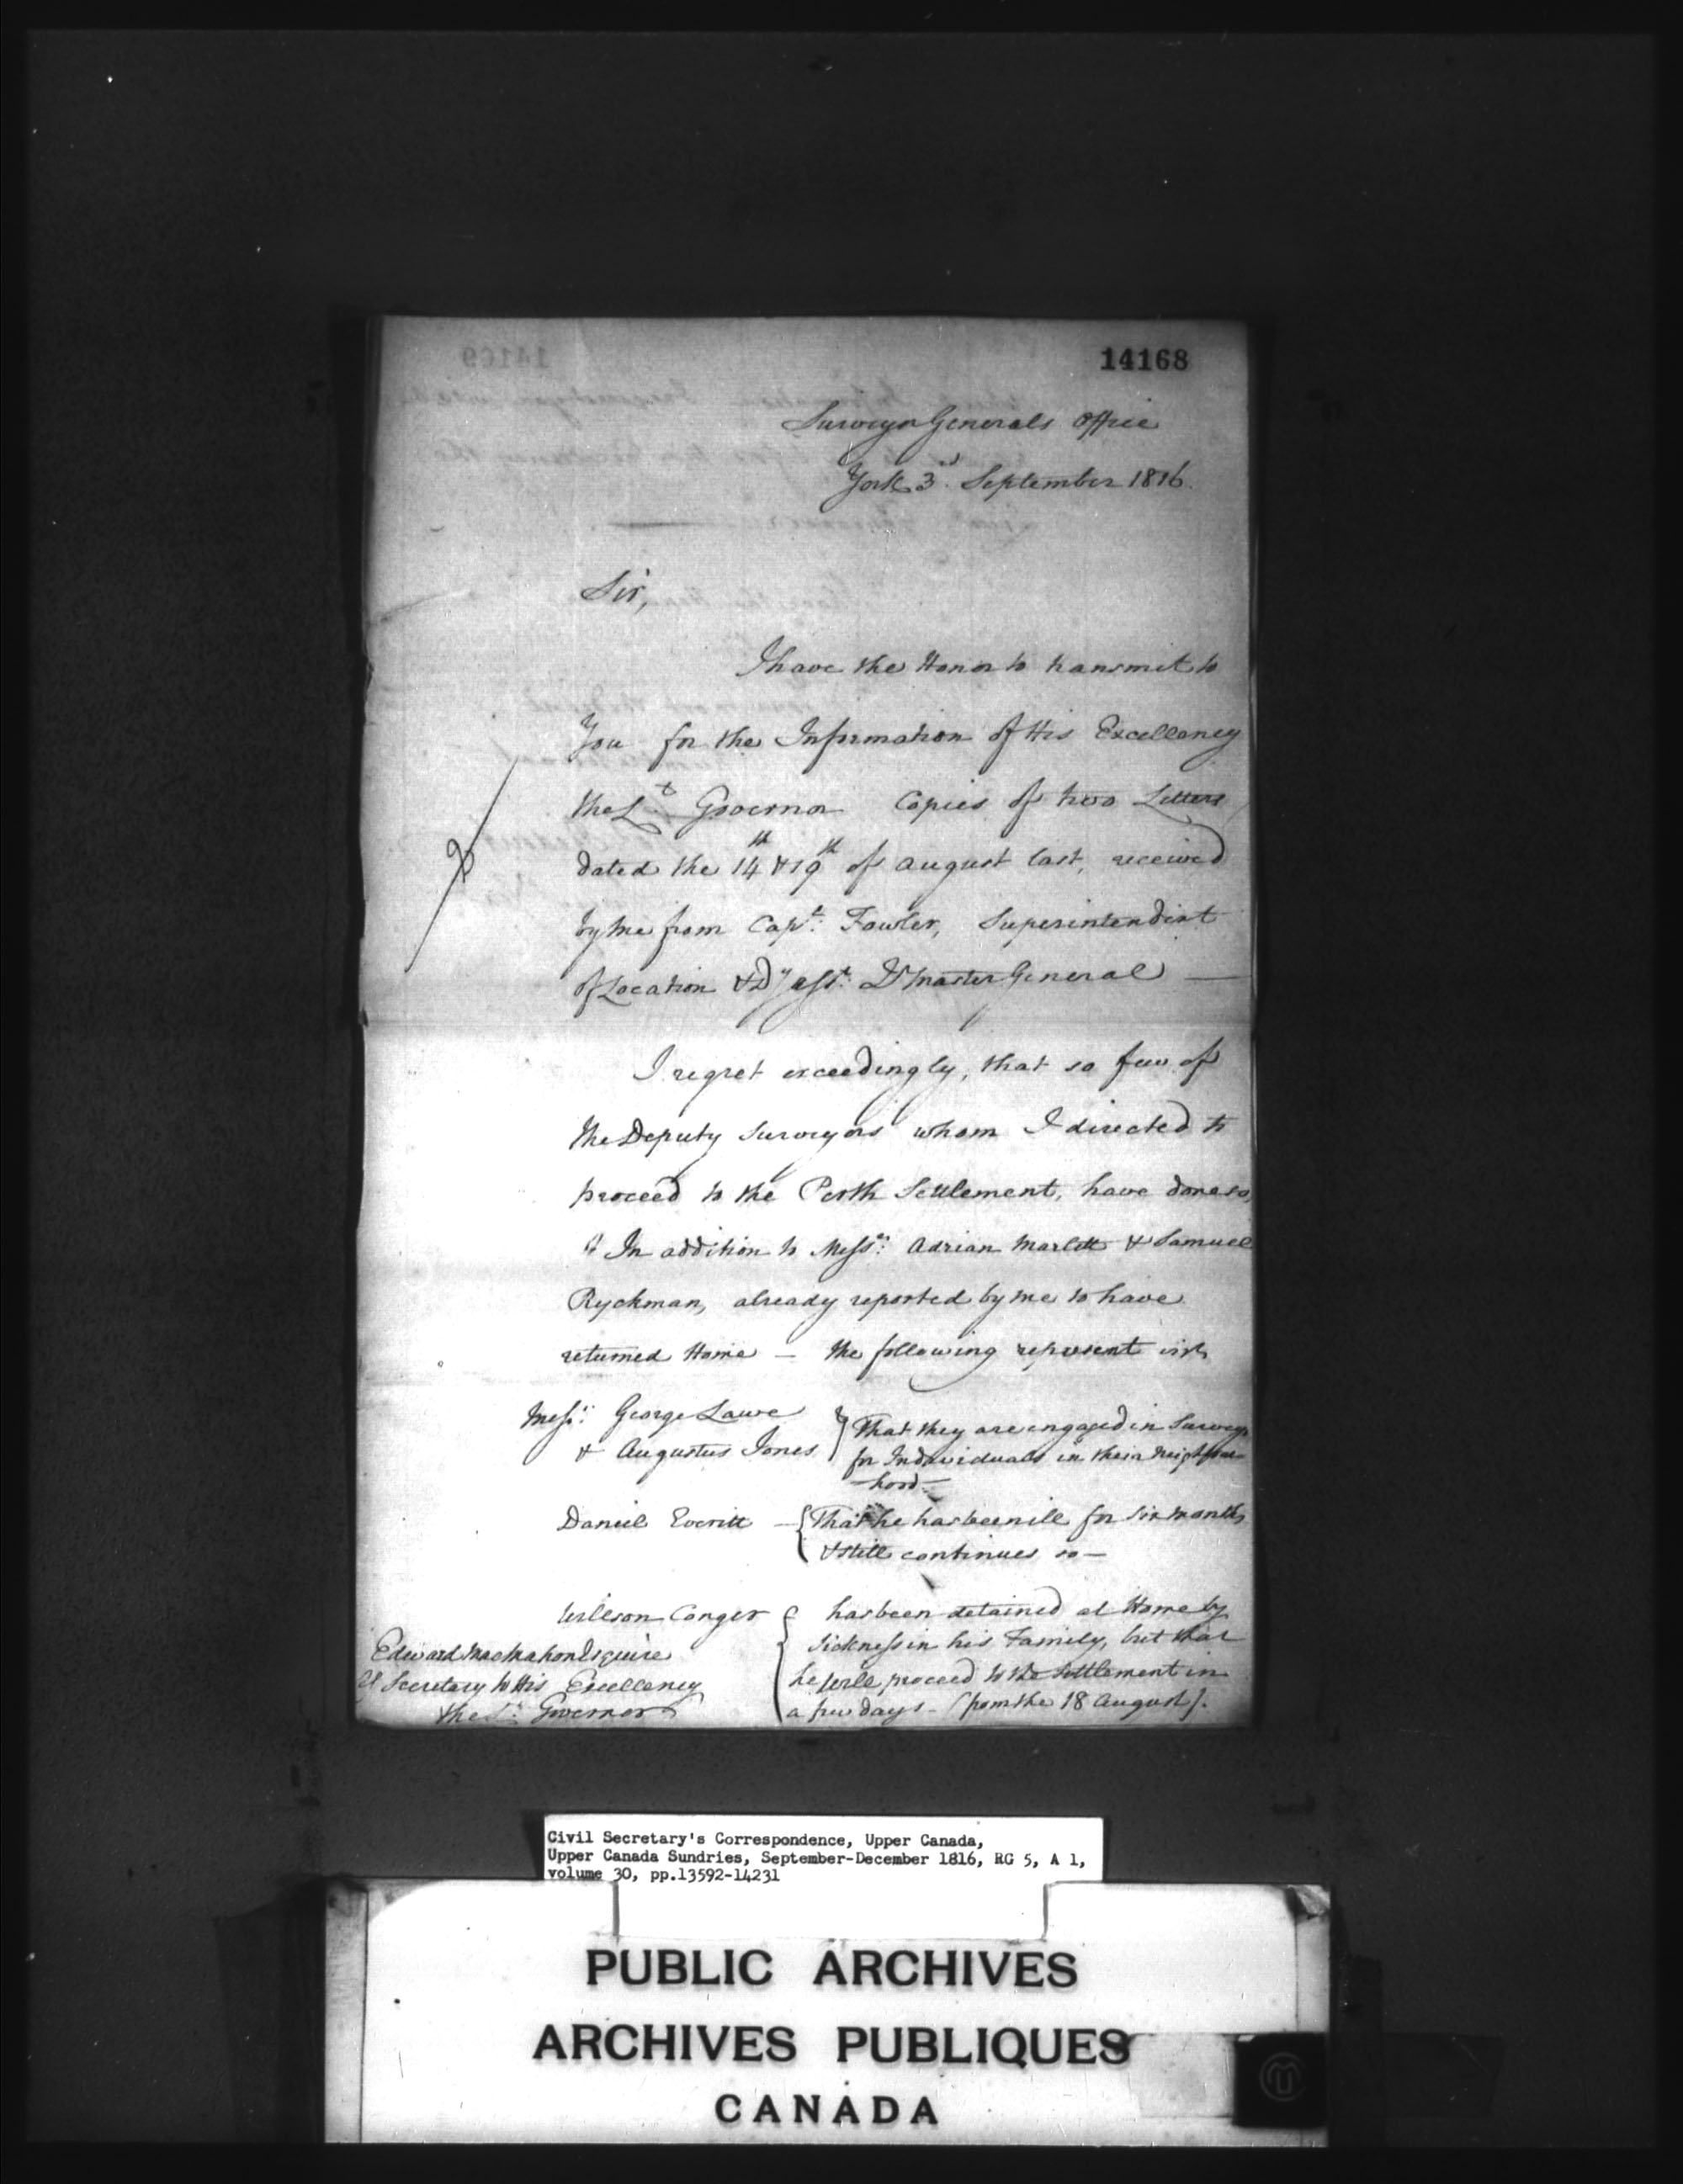 14168
Surveyor Generals Office
York 3d September 1816.
Sir,
I have the Honor to transmit to
You for the Information of His Excellency
the Lt Governor Copies of two Letters
dated the 14th & 19th of August last, received
by me from Capt. Fowler, Superintendent
of Location & Dy Asst. Qr Master General —
I regret exceedingly, that so few of
the Deputy Surveyors whom I directed to
proceed to the Perth Settlement, have done so,
In addition to Messrs. Adrian Marlett & Samuel
Ryckman, already reported by me to have
returned Home — the following represent viz
Messrs. George Lawe
& Augustus Jones } That they are engaged in Surveys
for Individuals in their Neighbour-
hood —
Daniel Everitt — { That he has been ill for six months
& still continues so —
Willson Conger { has been detained at Home by
sickness in his Family, but that
he will proceed to the settlement in
a few days — (from the 18 August).
Edward MacMahon Esquire
Secretary to His Excellency
the Lt. Governor
Civil Secretary's Correspondence, Upper Canada,
Upper Canada Sundries, September-December 1816, RG 5, A 1,
volume 30, pp.13592-14231
PUBLIC ARCHIVES
ARCHIVES PUBLIQUES
CANADA